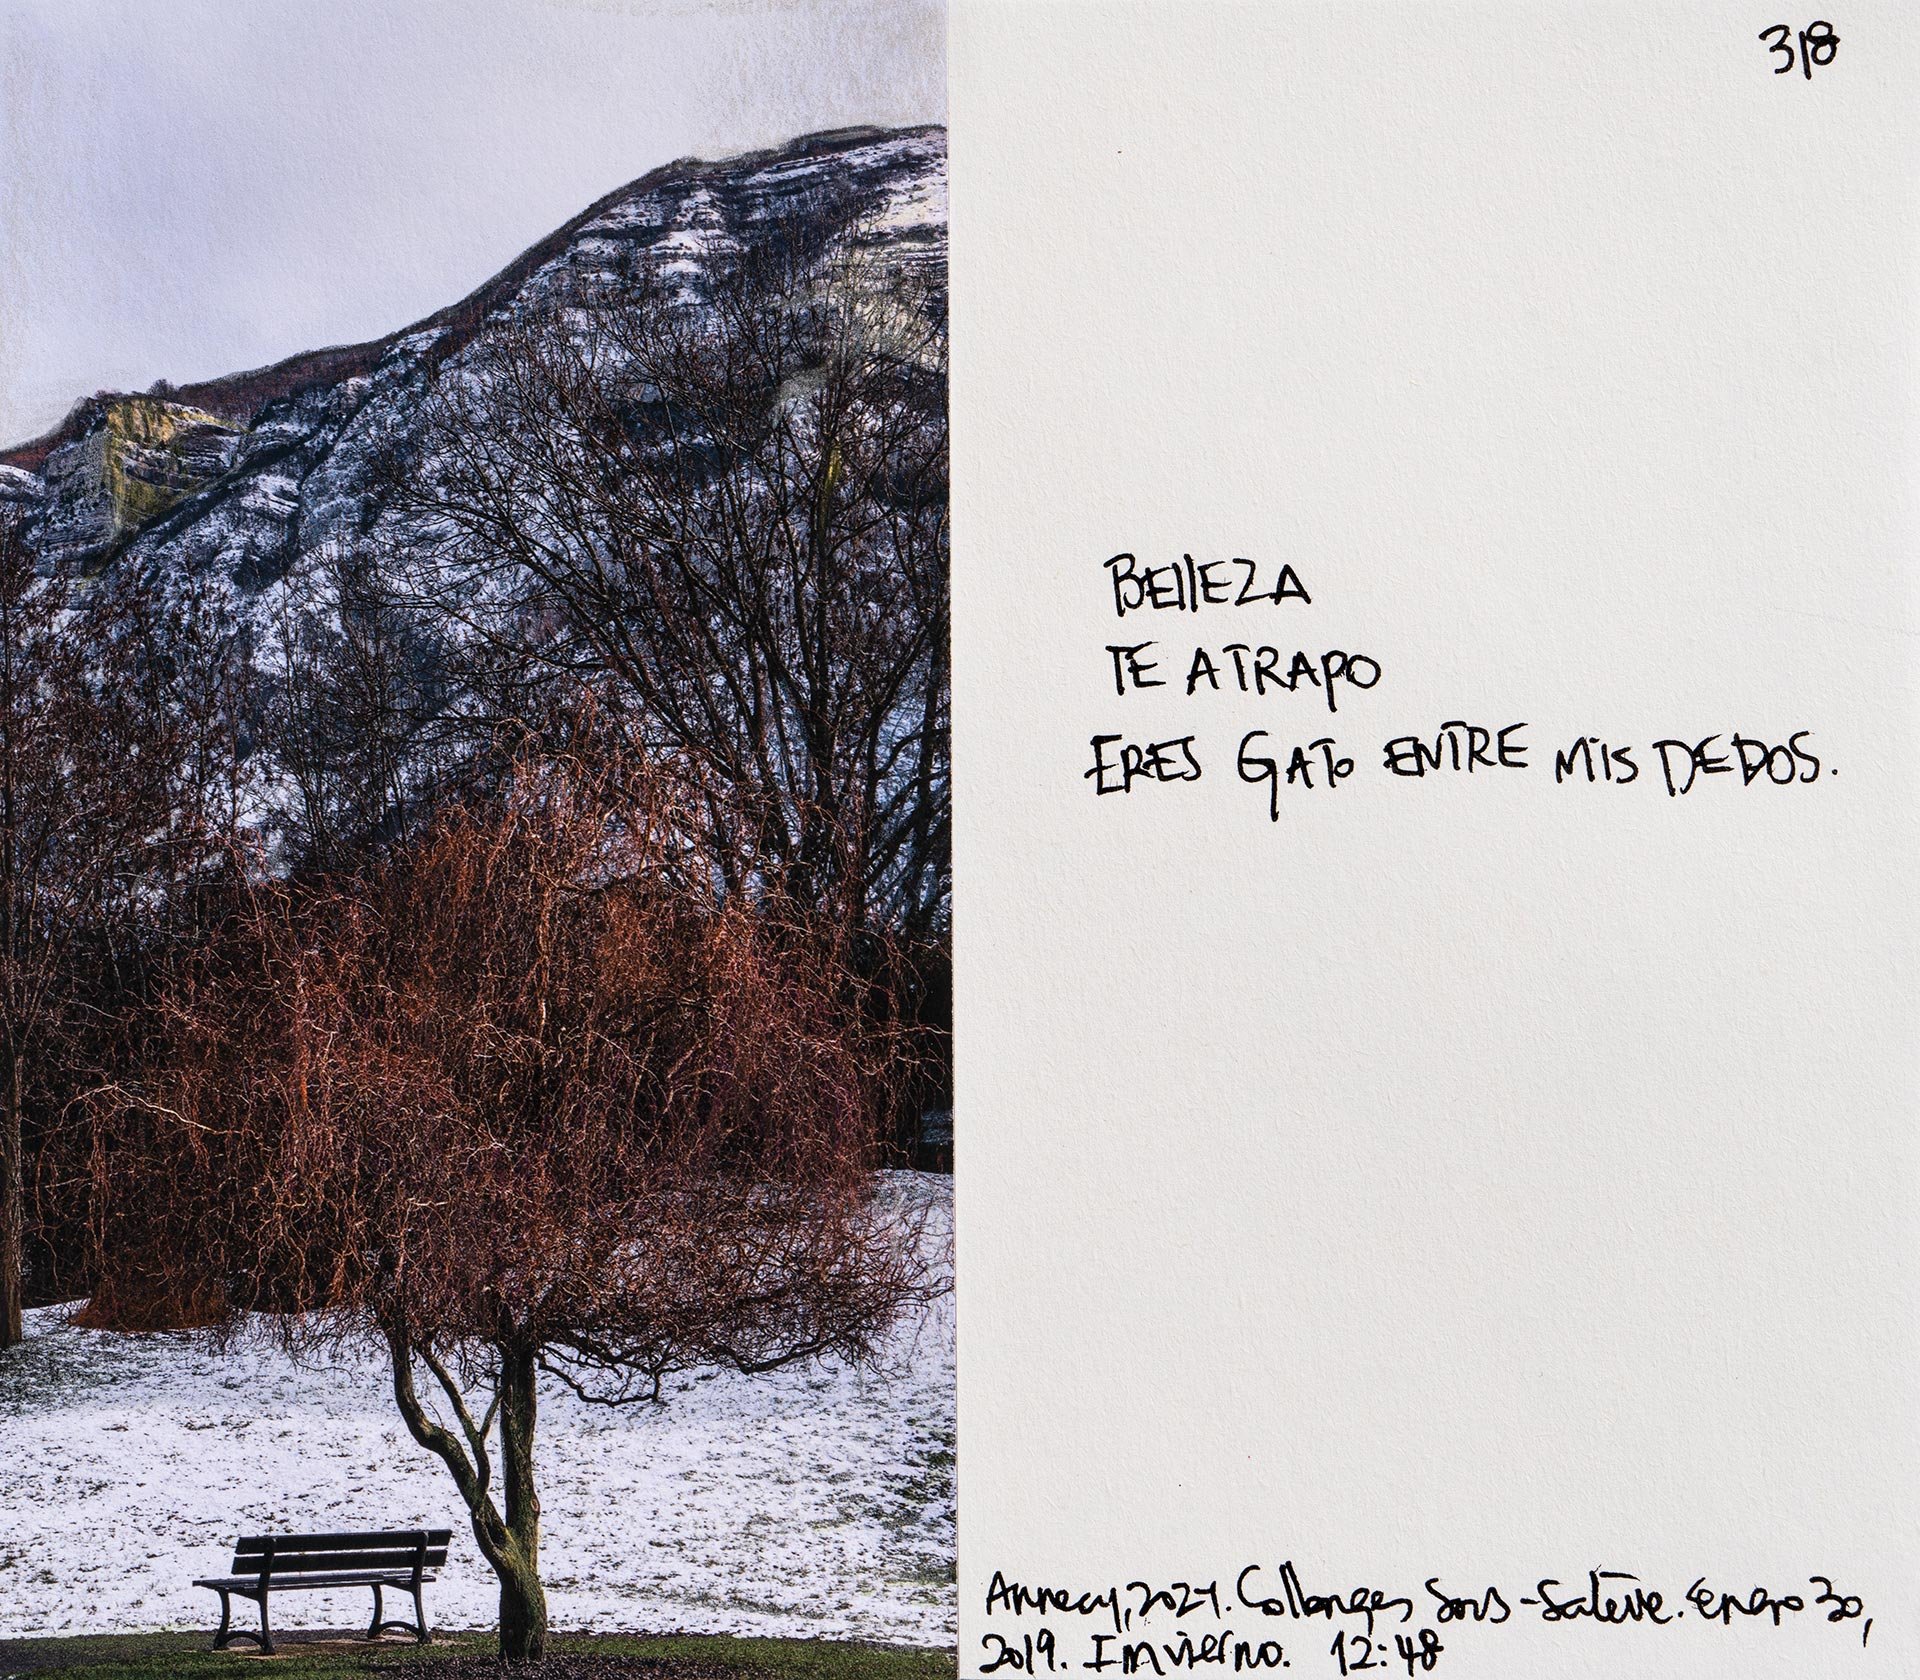 318
BEllEZA
TE ATRAPO
ERES GATO ENTRE MIS DEDOS.
Annecy, 2021. Collonges Sous-Salève. Enero 30,
2019. Invierno. 12:48